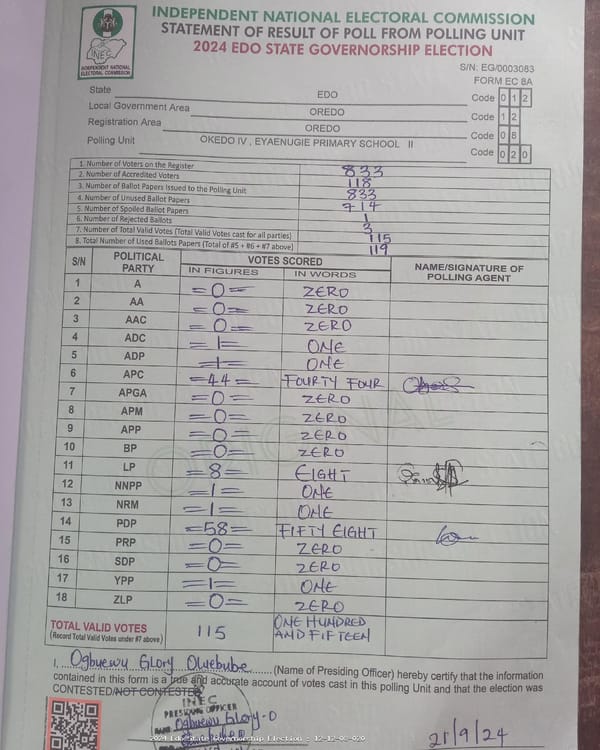 INDEPENDENT NATIONAL ELECTORAL COMMISSION
STATEMENT OF RESULT OF POLL FROM POLLING UNIT
2024 EDO STATE GOVERNORSHIP ELECTION
INEC
INDEPENDENT NATIONAL
ELECTORAL COMMISSION
S/N: EG/0003083
FORM EC 8A
State EDO Code 0 1 2
Local Government Area OREDO Code 1 2
Registration Area OREDO Code 0 8
Polling Unit OKEDO IV , EYAENUGIE PRIMARY SCHOOL II Code 0 2 0
1. Number of Voters on the Register 833
2. Number of Accredited Voters 118
3. Number of Ballot Papers Issued to the Polling Unit 833
4. Number of Unused Ballot Papers 714
5. Number of Spoiled Ballot Papers 1
6. Number of Rejected Ballots 3
7. Number of Total Valid Votes (Total Valid Votes cast for all parties) 115
8. Total Number of Used Ballots Papers (Total of #5 + #6 + #7 above) 119
S/N POLITICAL PARTY VOTES SCORED NAME/SIGNATURE OF POLLING AGENT
IN FIGURES IN WORDS
1 A =0= ZERO
2 AA =0= ZERO
3 AAC =0= ZERO
4 ADC =1= ONE
5 ADP =1= ONE
6 APC =44= FOURTY FOUR
7 APGA =0= ZERO
8 APM =0= ZERO
9 APP =0= ZERO
10 BP =0= ZERO
11 LP =8= EIGHT
12 NNPP =1= ONE
13 NRM =1= ONE
14 PDP =58= FIFTY EIGHT
15 PRP =0= ZERO
16 SDP =0= ZERO
17 YPP =1= ONE
18 ZLP =0= ZERO
TOTAL VALID VOTES 115 ONE HUNDRED
(Record Total Valid Votes under #7 above) AND FIFTEEN
ORIGINAL
I, Ogbuewu Glory Oluebube (Name of Presiding Officer) hereby certify that the information
contained in this form is a true and accurate account of votes cast in this polling Unit and that the election was
CONTESTED/NOT CONTESTED
INEC
PRESIDING OFFICER
Ogbuewu Glory-O
21/9/24
2024 Edo State Governorship Election - 12-12-08-020